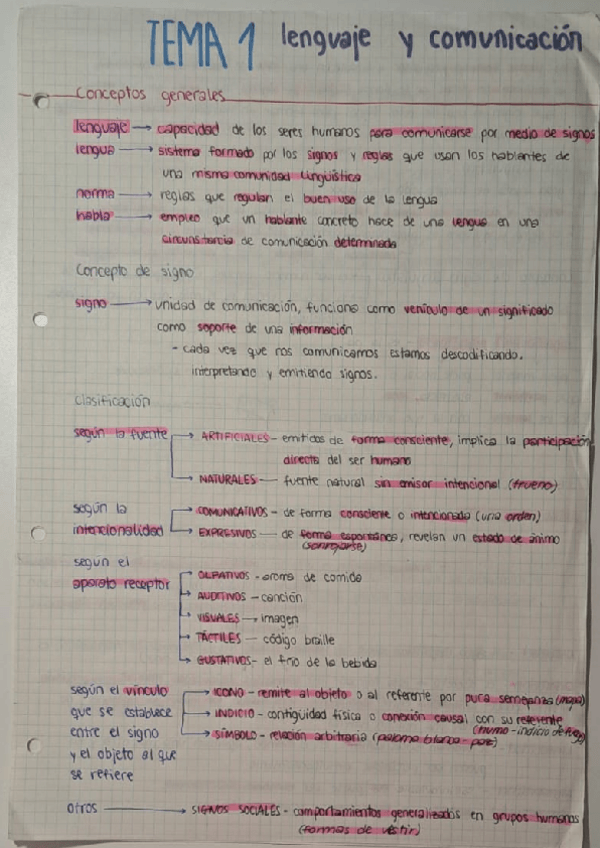 TEMA 1 lenguaje y comunicación
Conceptos generales
lenguaje → capacidad de los seres humanos para comunicarse por medio de signos
lengua → sistema formado por los signos y reglas que usan los hablantes de
una misma comunidad lingüística
norma → reglas que regulan el buen uso de la lengua
habla → empleo que un hablante concreto hace de una lengua en una
circunstancia de comunicación determinada
Concepto de signo
signo → unidad de comunicación, funciona como vehículo de un significado
como soporte de una información
- cada vez que nos comunicamos estamos descodificando,
interpretando y emitiendo signos.
Clasificación
según la fuente → ARTIFICIALES - emitidos de forma consciente, implica la participación
directa del ser humano
→ NATURALES - fuente natural sin emisor intencional (trueno)
según la → COMUNICATIVOS - de forma consciente o intencionada (una orden)
intencionalidad → EXPRESIVOS - de forma espontánea, revelan un estado de ánimo
(sonrojarse)
según el
aparato receptor → OLFATIVOS - aroma de comida
→ AUDITIVOS - canción
→ VISUALES → imagen
→ TÁCTILES - código braille
→ GUSTATIVOS - el frío de la bebida
según el vínculo → ICONO - remite al objeto o al referente por pura semejanza (mapa)
que se establece → INDICIO - contigüidad física o conexión causal con su referente
(humo - indicio de fuego)
entre el signo → SÍMBOLO - relación arbitraria (paloma blanca - paz)
y el objeto al que
se refiere
otros → SIGNOS SOCIALES - comportamientos generalizados en grupos humanos
(formas de vestir)